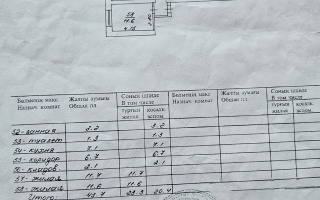 58
11.6
4.15
Бөлменің мақс Назнач. комнат | Жалпы аумағы Общая пл | Соның ішінде В том числе | Бөлменің мақс Назнач. комнат | Жалпы аумағы Общая пл. | Соның ішінде В том числе
тұрғын жилая | қосалқ вспом. | тұрғын жилая | қосалқ вспом.
52-ванная 3.2 3.2
53-туалет 1.3 1.3
54-кухня 7.1 7.1
55-коридор 6.7 6.7
56-кладов. 2.1 2.1
57-жилая 11.7 11.7
58-жилая 11.6 11.6
Итого: 43.7 23.3 20.4